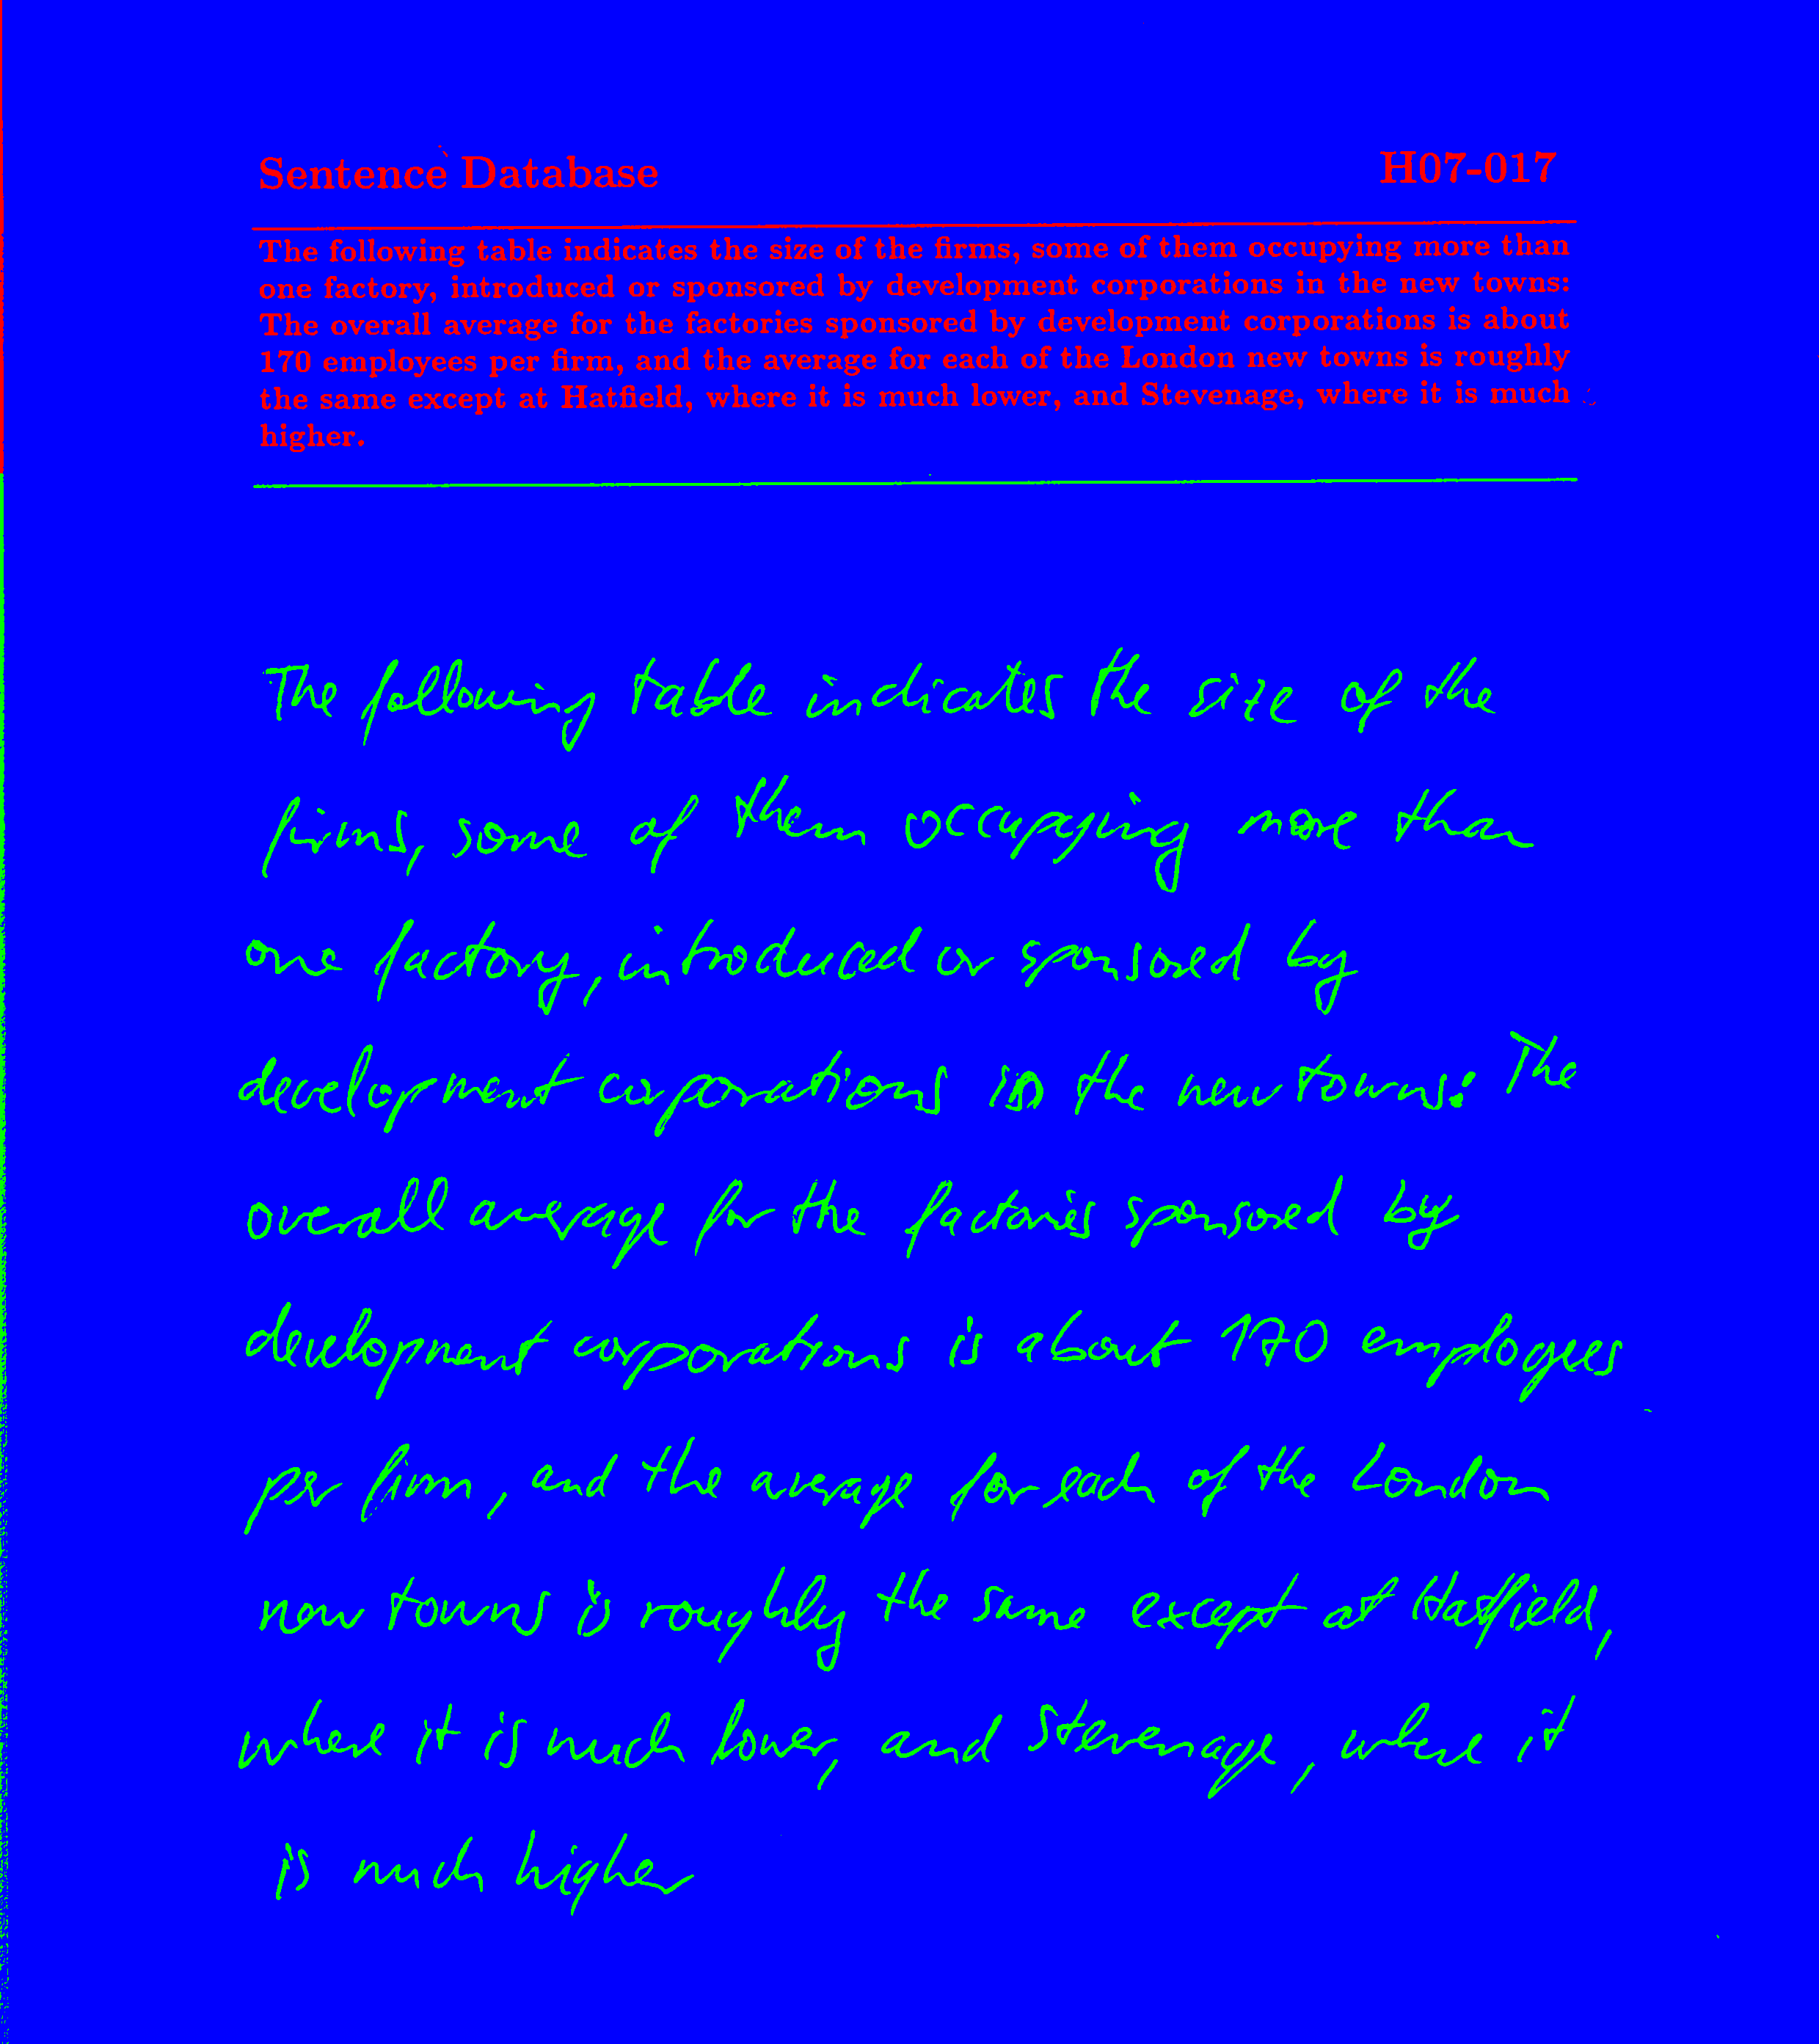 Sentence Database H07-017
The following table indicates the size of the firms, some of them occupying more than
one factory, introduced or sponsored by development corporations in the new towns:
The overall average for the factories sponsored by development corporations is about
170 employees per firm, and the average for each of the London new towns is roughly
the same except at Hatfield, where it is much lower, and Stevenage, where it is much
higher.
The following table indicates the size of the
firms, some of them occupying more than
one factory, introduced or sponsored by
development corporations in the new towns: The
overall average for the factories sponsored by
development corporations is about 170 employees
per firm, and the average for each of the London
new towns is roughly the same except at Hatfield,
where it is much lower, and Stevenage, where it
is much higher